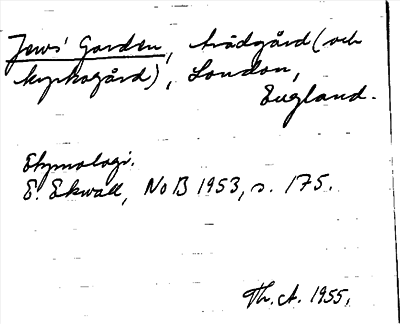 Jews' Garden, trädgård (och
kyrkogård), London,
England.
Etymologi.
E. Ekwall, NoB 1953, s. 175.
Th. A. 1955.